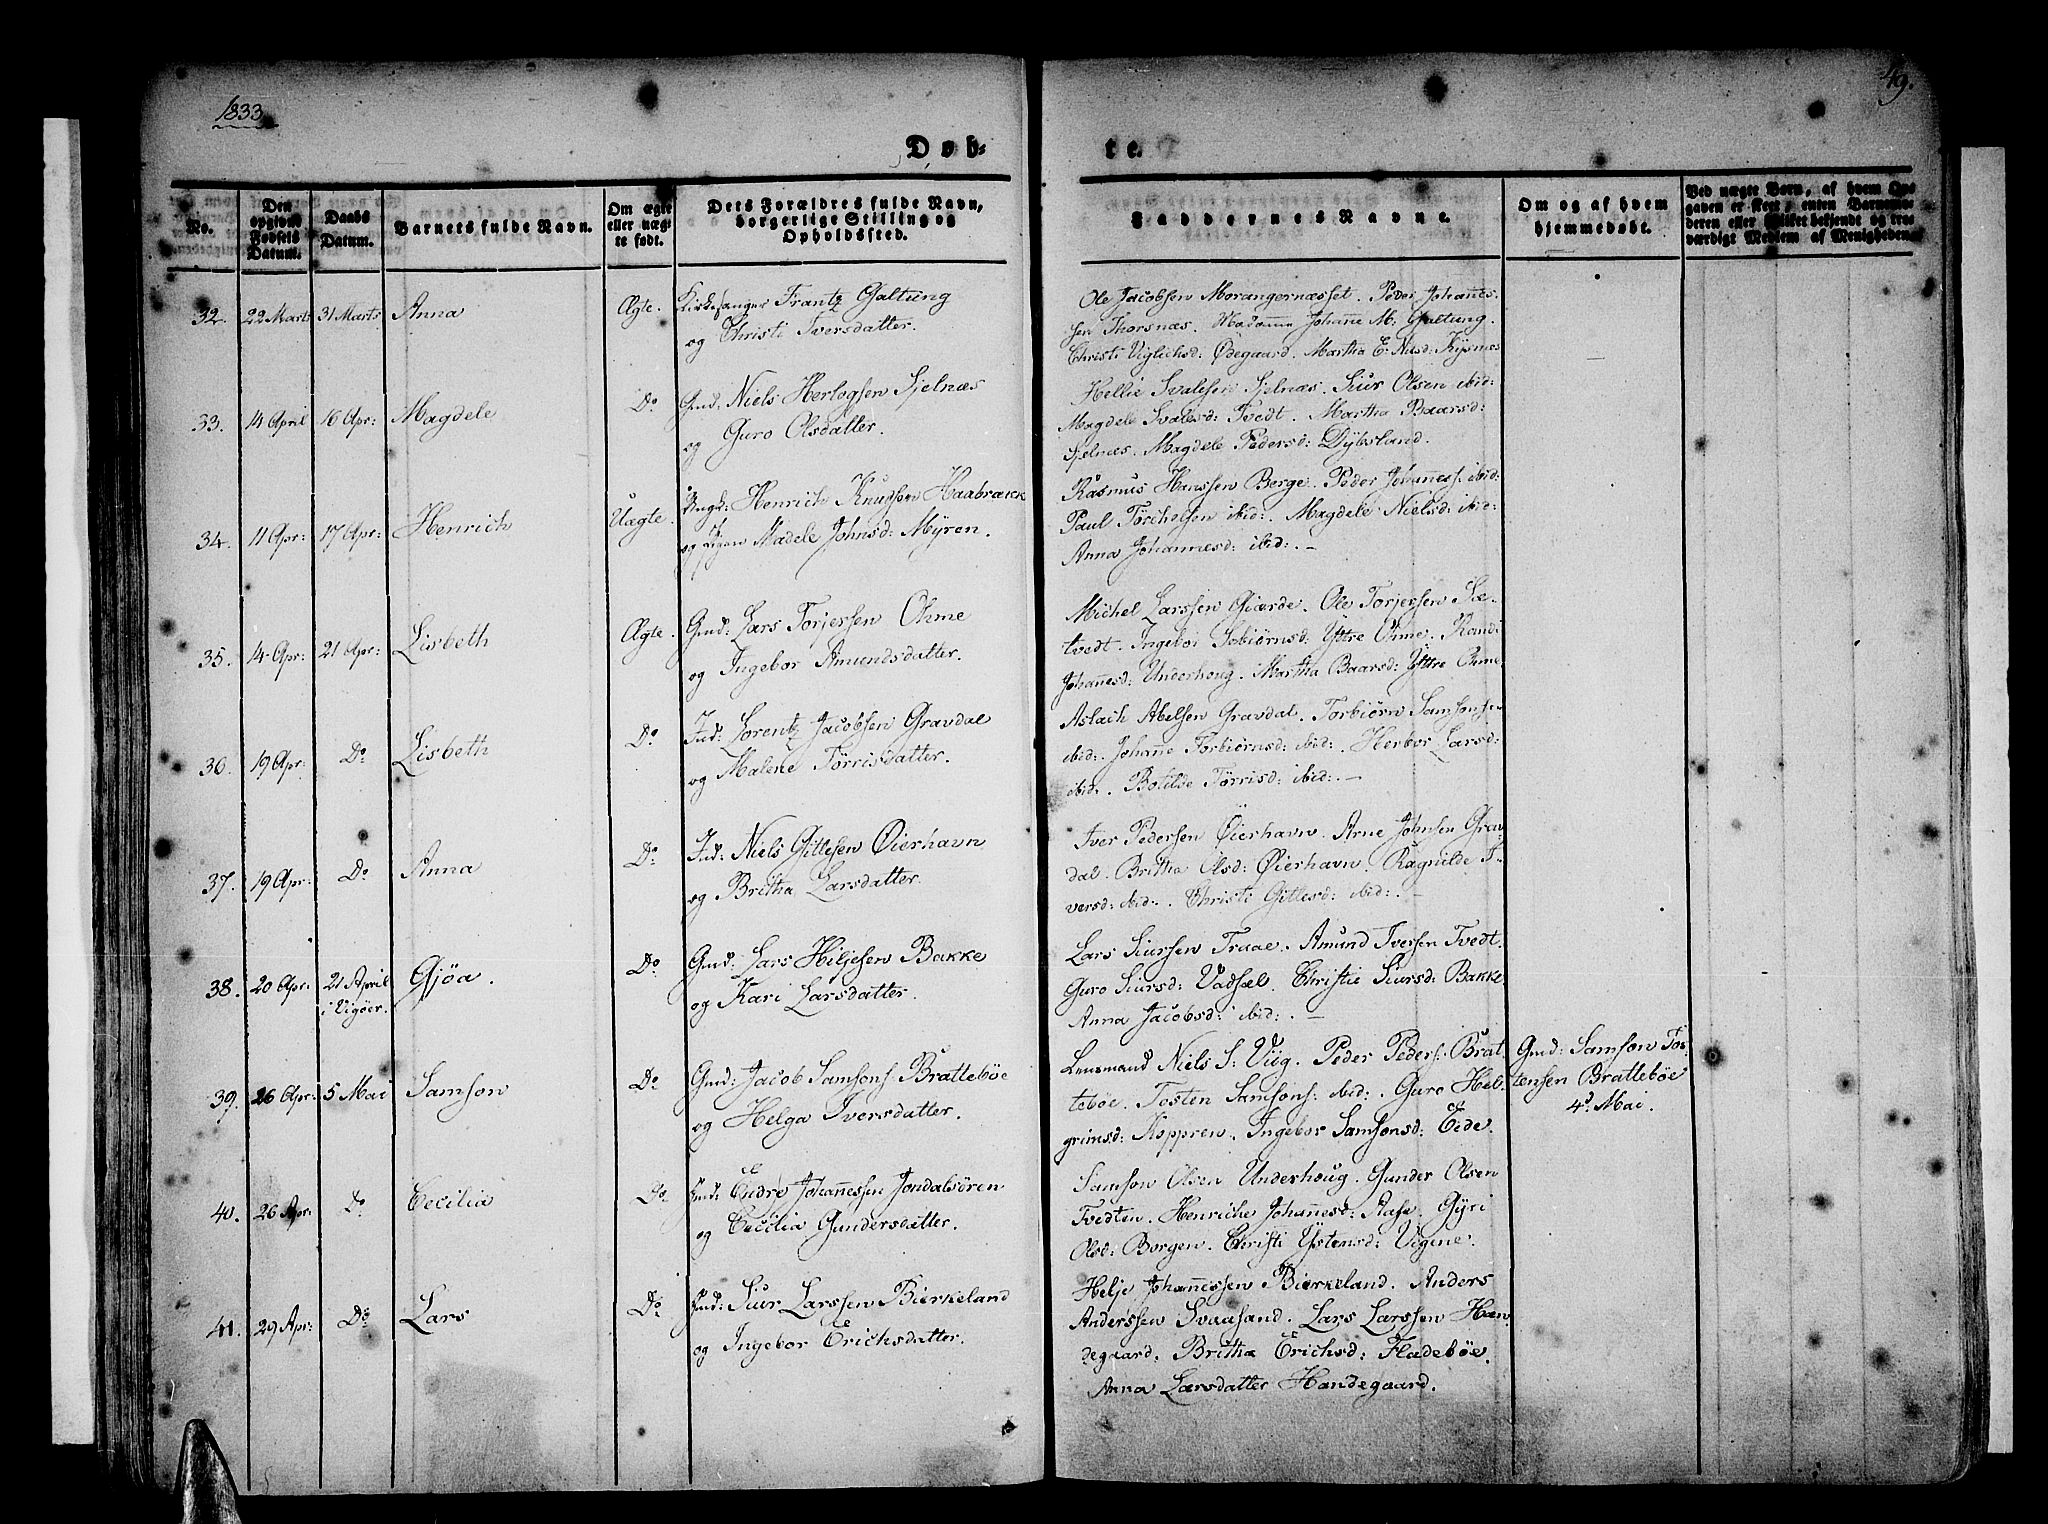 1833
49.
Døb-
te.
No.
Den opgivne Fødsels Datum.
Daabs Datum.
Barnets fulde Navn.
Om ægte eller uægte født.
Dets Forældres fulde Navn, borgerlige Stilling og Opholdssted.
Faddernes Navne.
Om og af hvem hjemmedøbt.
Ved uægte Børn, af hvem Opgaven er skeet, enten Barnemoderen eller hvilket bekjendt og troværdigt Medlem af Menigheden.
32. 22 Marts 31 Marts Anna Ægte. Kirkesanger Frantz Galtung
og Christi Iversdatter.
Ole Jacobsen Morangernæsset. Peder Johannes-
sen Thorsnæs. Madame Johanne M: Galtung.
Christi Viglichsd: Ødegaard. Martha E. Nilsd: Kysnes
33. 14 April 16 Apr: Magdele Do Gmd: Niels Herlogsen Sjelnæs
og Guro Olsdatter.
Hellie Svalesen Sjelnæs. Siur Olsen ibid:
Magdele Svalesd: Tvedt. Martha Baarsd:
Sjelnæs. Magdele Pedersd: Dybsland.
34. 11 Apr: 17 Apr: Henrich Uægte. Ungk: Henrich Knudsen Haabrækk
og Pigen Madele Johnsd: Myren.
Rasmus Hanssen Berge. Peder Johanness: ibid:
Paul Torchelsen ibid: Magdele Nielsd: ibid:
Anna Johannesd: ibid:. —
35. 14 Apr: 21 Apr: Lisbeth Ægte. Gmd: Lars Torjersen Ohme
og Ingebor Amundsdatter.
Michel Larssen Giærde. Ole Torjersen Sæ-
tvedt. Ingebor Tobiørnsd: Yttre Ohme. Randi
Johannesd: Underhoug. Martha Baarsd: Yttre Ohme
36. 19 Apr: Do Lisbeth Do Ind: Lorentz Jacobsen Gravdal
og Malene Tørrisdatter.
Aslach Abelsen Gravdal. Torbiørn Samsonsen
ibid: Johanne Torbiørnsd: ibid: Herbor Larsd:
ibid:. Botilde Tørrisd: ibid:. —
37. 19 Apr: Do Anna Do: Ind: Niels Gittlesen Øierhavn
og Britha Larsdatter.
Iver Pedersen Øierhavn. Arne Johnsen Grav-
dal. Britha Olsd: Øierhavn. Ragnilde I-
versd: ibid:. Christi Gitlesd: ibid:. —
38. 20 Apr: 21 April Gjøa. Do Gmd: Lars Hiljesen Bakke
i Vigøer. og Kari Larsdatter.
Lars Siursen Traae. Amund Iversen Tvedt.
Guro Siursd: Vadsæl. Christie Siursd: Bakke
Anna Jacobsd: ibid:. —
39. 26 Apr: 5 Mai Samson Do Gmd: Jacob Samsons: Brattebøe
og Helga Iversdatter.
Lensmand Niels S: Viig. Peder Peders: Brat-
tebøe. Tosten Samsons: ibid:. Guro Hel-
grimsd: Kopperen. Ingebor Samsonsd: Eide.
Gmd: Samson Tor-
stensen Brattebøe
4d Mai.
40. 26 Apr: Do Cecilia Do. Ind: Endre Johannessen Jondalsøren
og Cecilia Gundersdatter.
Samson Olsen Underhoug. Gunder Olsen
Tvedten. Henriche Johannesd: Gyri
Olsd: Borgen. Christi Ystensd: Vigene.
41. 29 Apr: Do Lars Do Ind: Siur Larssen Bierkeland
og Ingebor Erichsdatter.
Helje Johannessen Bierkeland. Anders
Anderssen Svaasand. Lars Larssen Han-
degaard: Britha Erichsd: Fladebøe.
Anna Larsdatter Handegaard.